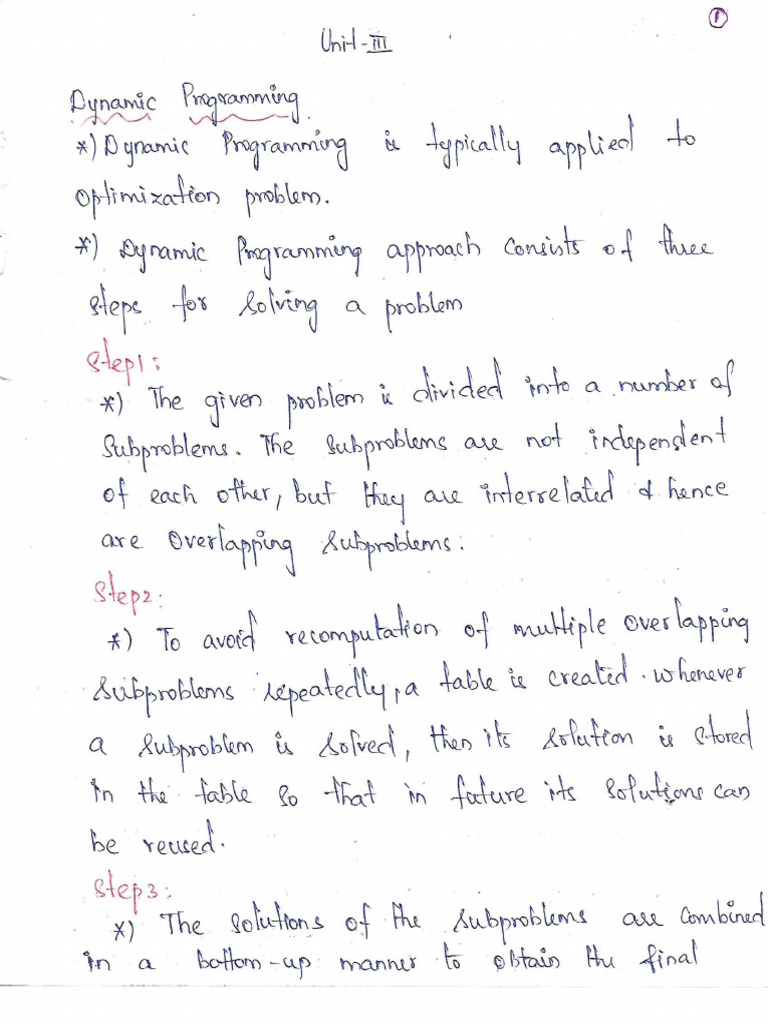 1
Unit-III
Dynamic Programming.
*) Dynamic Programming is typically applied to
Optimization problem.
*) Dynamic Programming approach consists of three
steps for solving a problem
Step1:
*) The given problem is divided into a number of
Subproblems. The subproblems are not independent
of each other, but they are interrelated & hence
are overlapping subproblems.
Step2:
*) To avoid recomputation of multiple overlapping
subproblems repeatedly, a table is created. whenever
a subproblem is solved, then its solution is stored
in the table so that in future its solutions can
be reused.
Step3:
*) The solutions of the subproblems are combined
in a bottom-up manner to obtain the final